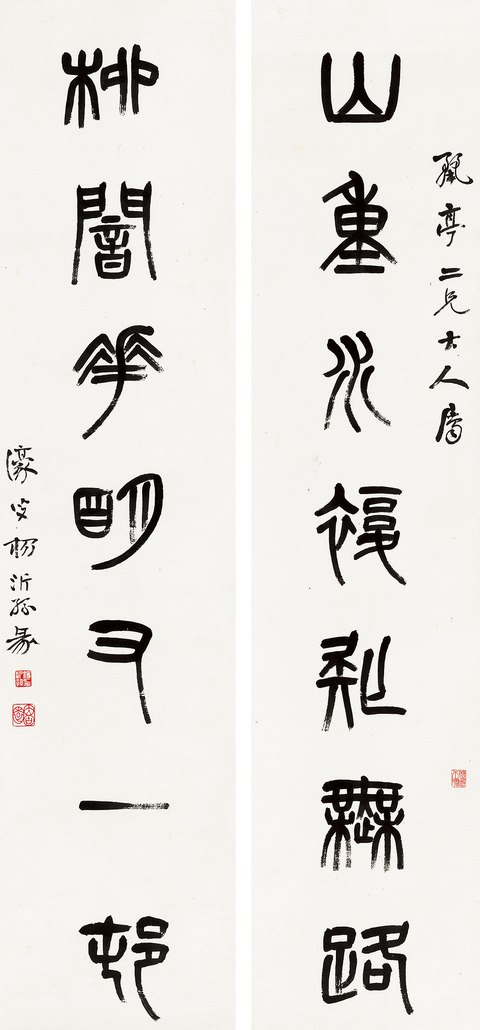 亭二兄大人屬
山重水複疑無路
柳闇華明又一邨
濠叟楊沂孫篆